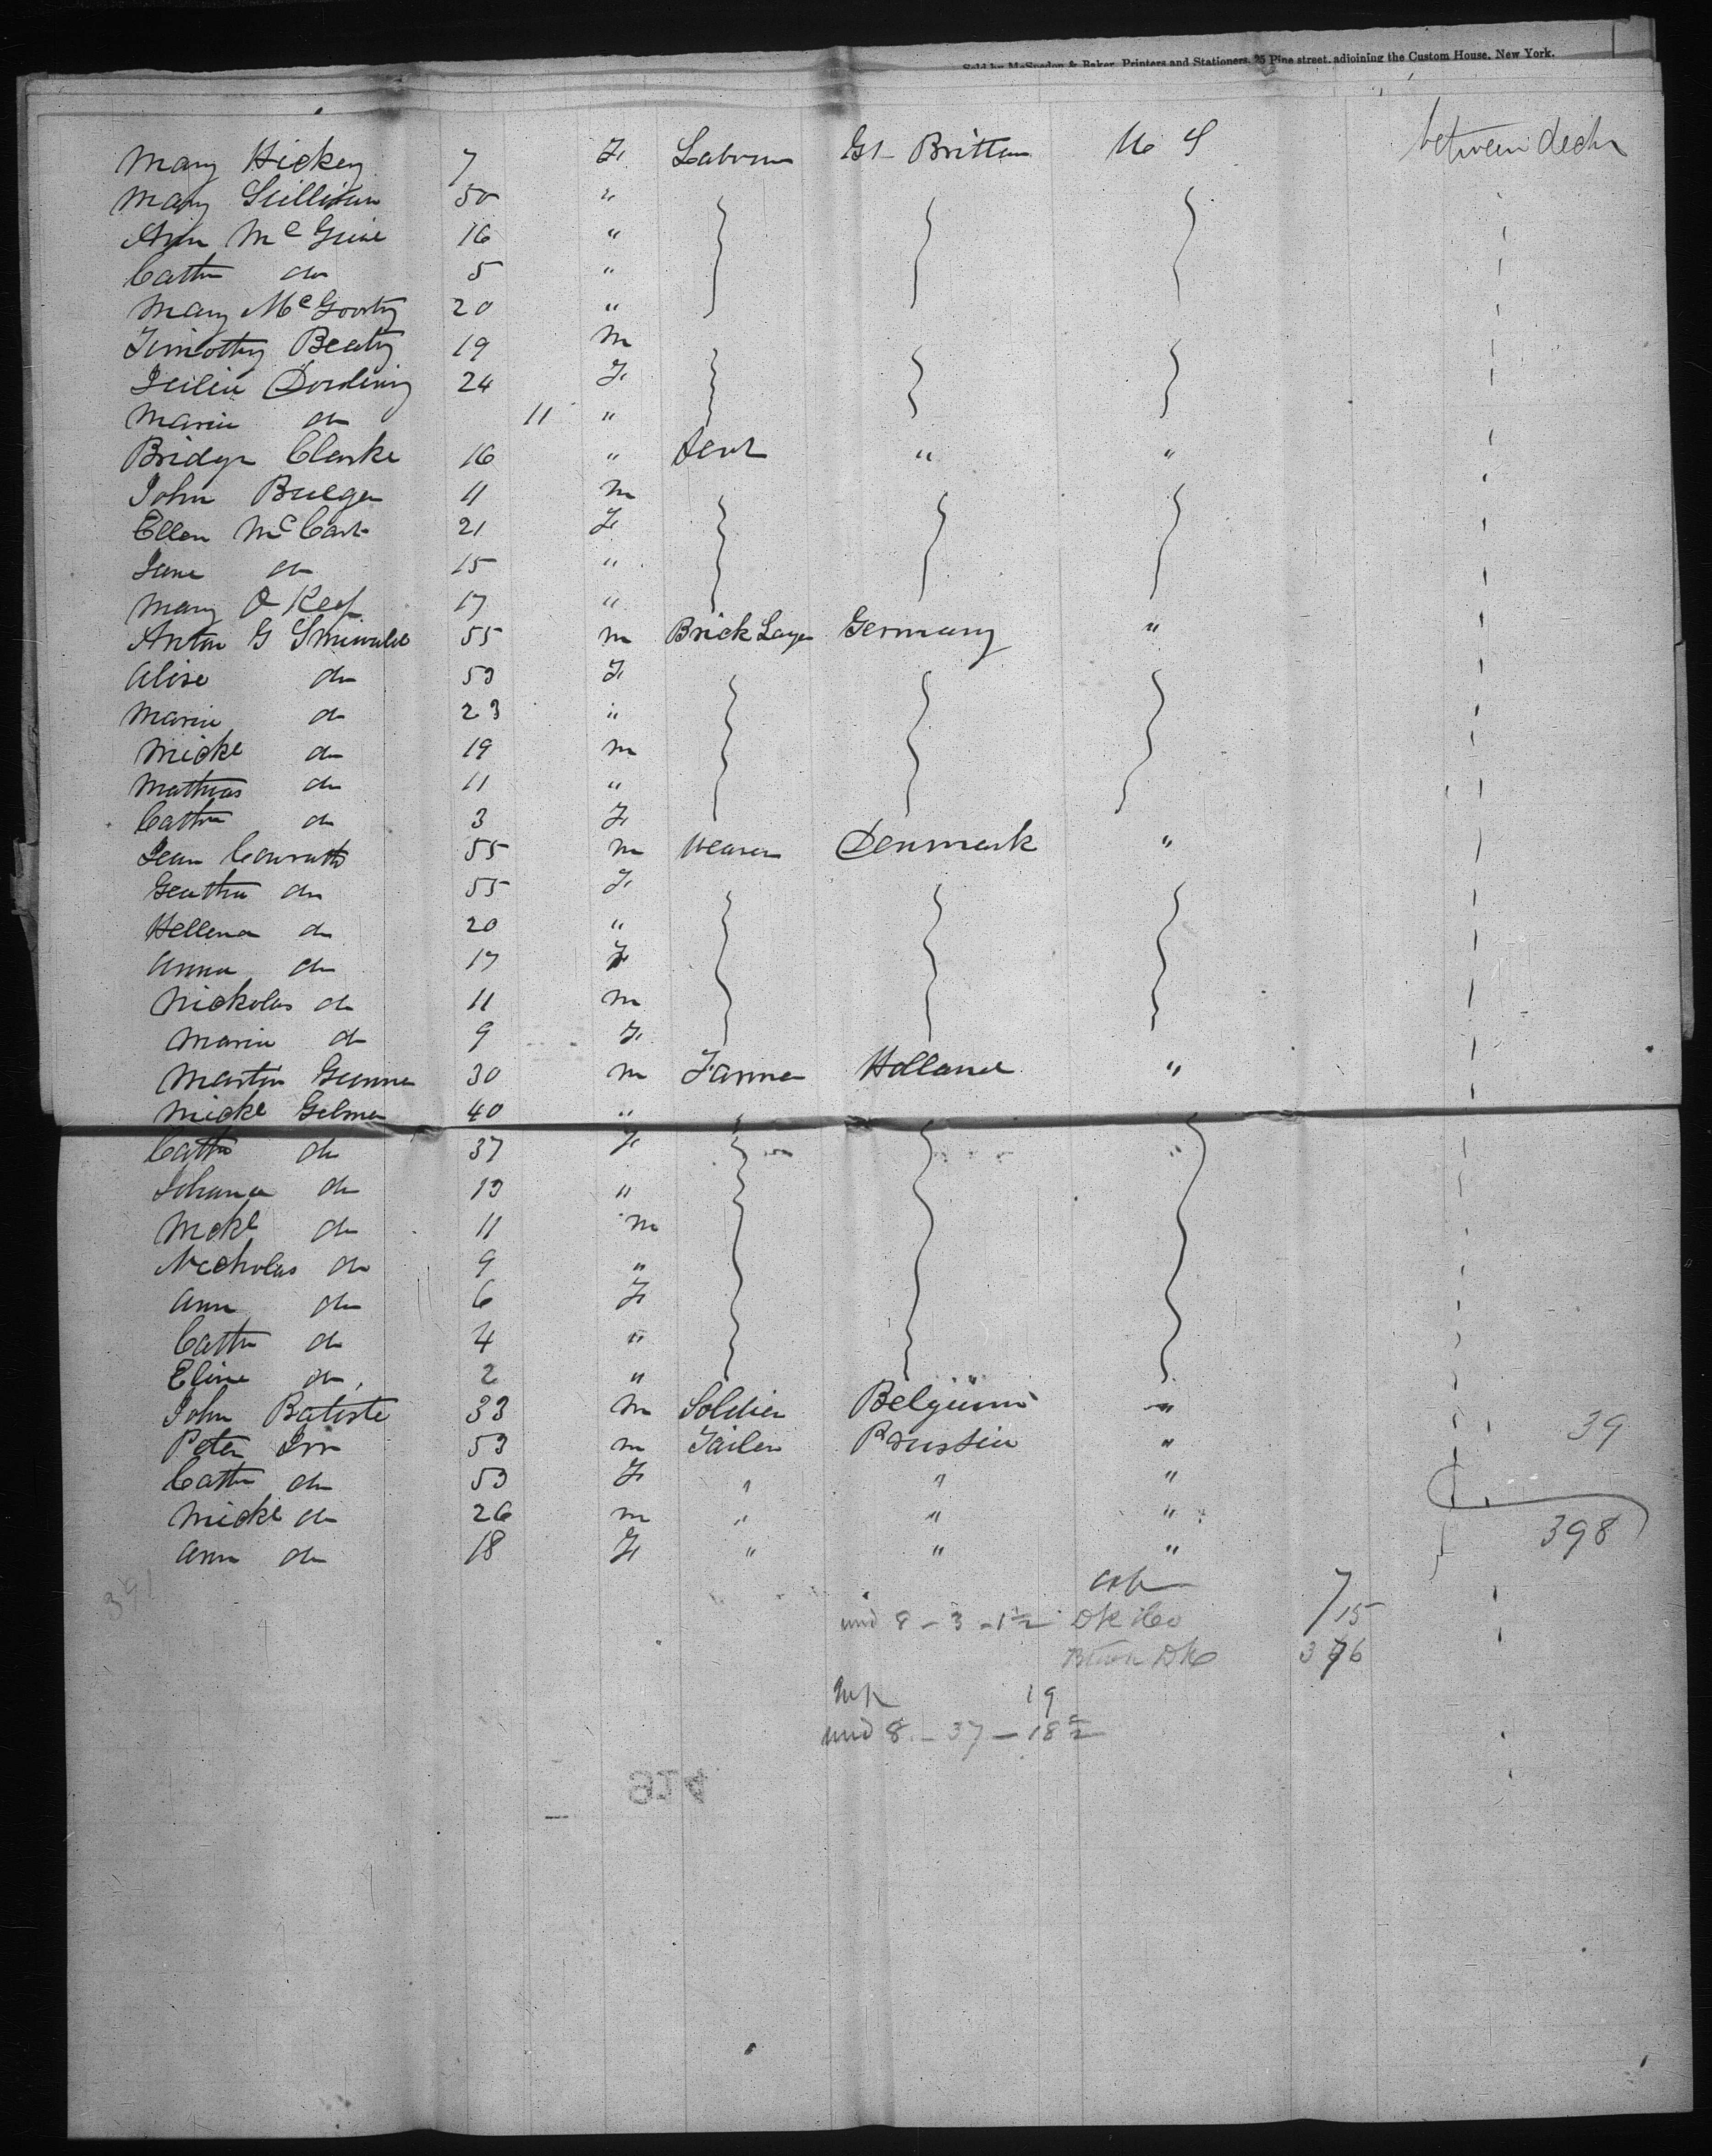 Sold by McSpedon & Baker, Printers and Stationers, 25 Pine street, adjoining the Custom House, New York.
Mary Hickey 7 F Labourer Gt Brittan U S between decks
Mary Sullivan 50 "
Ann McGuire 16 "
Cath do 5 "
Mary McGoorty 20 "
Timothy Beaty 19 m
Julia 24 F
Maria do 11 "
Bridget Clarke 16 " Servt " "
John Bulger 11 m
Ellen McCart 21 F
Jane do 15 "
Mary O Keef 17 "
Anton G 55 m Brick Layer Germany "
Alise do 53 F
Maria do 23 "
Mickl do 19 m
Mathias do 11 "
Cathr do 3 F
Jean 55 m Weaver Denmark "
do 55 F
Hellena do 20 "
Anna do 17 F
Nickolas do 11 m
Maria do 9 F
Martin 30 m Farmer Holland "
Mickl 40 "
Cath do 37 F
Johana do 13 "
Mckl do 11 m
Nicholas do 9 "
Ann do 6 F
Cath do 4 "
Eline do 2 "
John Batiste 33 m Soldier Belgium "
Peter 53 m Tailer Prussia " 39
Cath do 53 F " " "
Mickl do 26 m " " "
398
Ann do 18 F " " "
391
7
und 8 - 3 - 1½ 15
376
19
und 8 - 37 - 18½
914